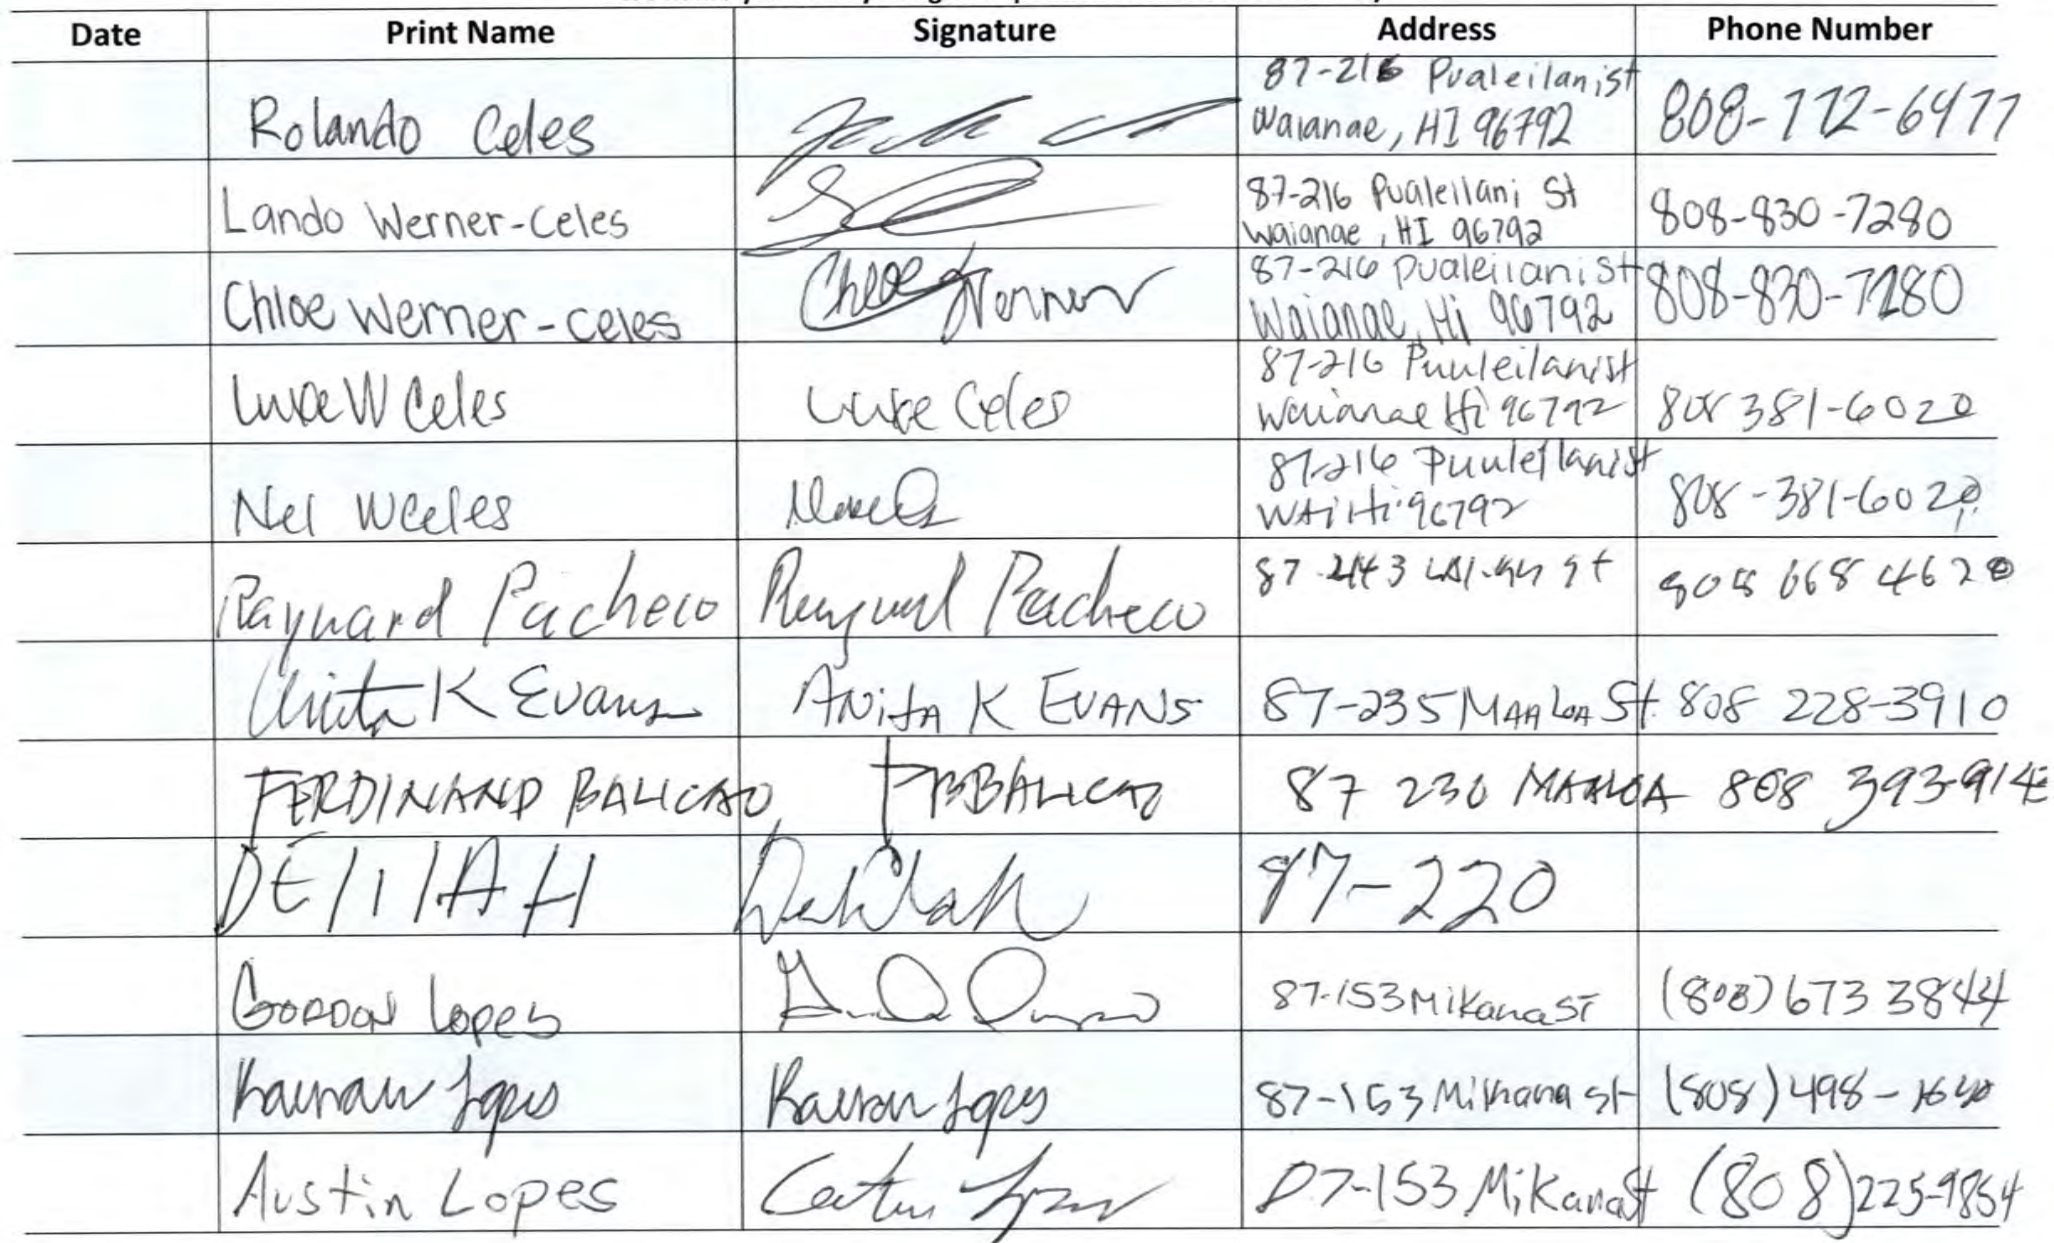 Date Print Name Signature Address Phone Number
Rolando Celes 87-216 Pualeilani st
Waianae, HI 96792 808-772-6477
Lando Werner-Celes 87-216 Pualeilani St
Waianae, HI 96792 808-830-7280
Chloe Werner-Celes Chloe Werner 87-216 Pualeilani St
Waianae, Hi 96792 808-830-7280
Luke W Celes Luke Celes 87-216 Puuleilani st
Waianae Hi 96792 808 381-6020
Nel W Celes 87-216 Puuleilani st
WAi Hi 96792 808-381-6020
Raynard Pacheco Raynard Pacheco 87 st 808 668 4620
Anita K Evans ANitA K EVANS 87-235 MAALOA St. 808 228-3910
FERDINAND BALICAO FBBALICAO 87 230 MAALOA 808 393-914
DElilAH Delilah 87-220
GORDON Lopes 87-153 Mikana ST (808) 673 3844
Lopes Lopes 87-153 Mikana st (808) 498-
Austin Lopes 87-153 Mikana St (808) 225-9854